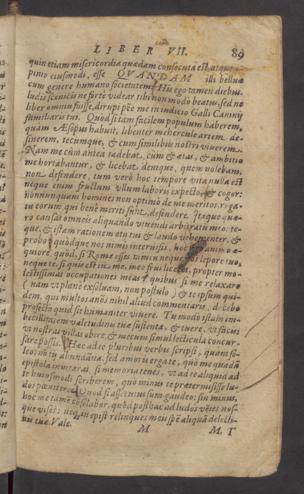 LIBER VII. 89
quin etiam misericordia quædam consecuta est atque o-
pinio eiusmodi, esse QVANDAM illi belluæ
cum genere humano societatem. His ego tamen diebus,
ludis scenicis ne fortè videar tibi non modò beatus, sed
liber omnino fuisse, dirupi pæne me in iudicio Galli Caninij
familiaris tui. Quòd si tam facilem populum haberem,
quàm Æsopus habuit, libenter mehercule artem de-
sinerem, tecumque, & cum similibus nostri viuerem.
Nam me cùm antea tædebat, cùm & ætas, & ambitio
me hortabantur, & licebat denique, quem nolebam,
non defendere, tum verò hoc tempore vita nulla est
neque enim fructum vllum laboris expecto, & cogor
nonnunquam homines non optimè de me meritos, roga-
tu eorum qui bene meriti sunt, defendere. Itaque quæ-
ro causas omneis aliquando viuendi arbitratu meo: te-
que, & istam rationem otij tui & laudo vehementer, &
probo: quodque nos minus interuisis, hoc animo æ-
quiore quòd, si Romæ esses, tamen neque lepore tuo,
neque te, si quis est in me, meo frui liceret, propter mo-
lestissimas occupationes meas: quibus si me relaxaro
(nam vt planè exsoluam, non postulo) & te ipsum qui-
dem, qui multos annos nihil aliud commentaris, docebo
profectò quid sit humaniter viuere. Tu modò istam im-
becillitatem valetudinis tuæ sustenta, & tuere, vt facis:
vt nostras villas obire, & mecum simul lecticula concur-
sare possis. Hæc ad te pluribus verbis scripsi, quàm so-
leo: non otij abundantia, sed amoris erga te, quòd me quadã
epistola inuitaras, si memoria tenes, vt ad te aliquid
eiusmodi scriberem, quò minus te prætermisisse lu-
dos pœniteret. Quod si assecutus sum, gaudeo: sin minus,
hoc me tamẽ consolabor, quòd posthac ad ludos vẽies nos-
que vises: neque in epist. relinques meis spẽ aliquã delecta-
tionis tuæ. Vale.
M M. T